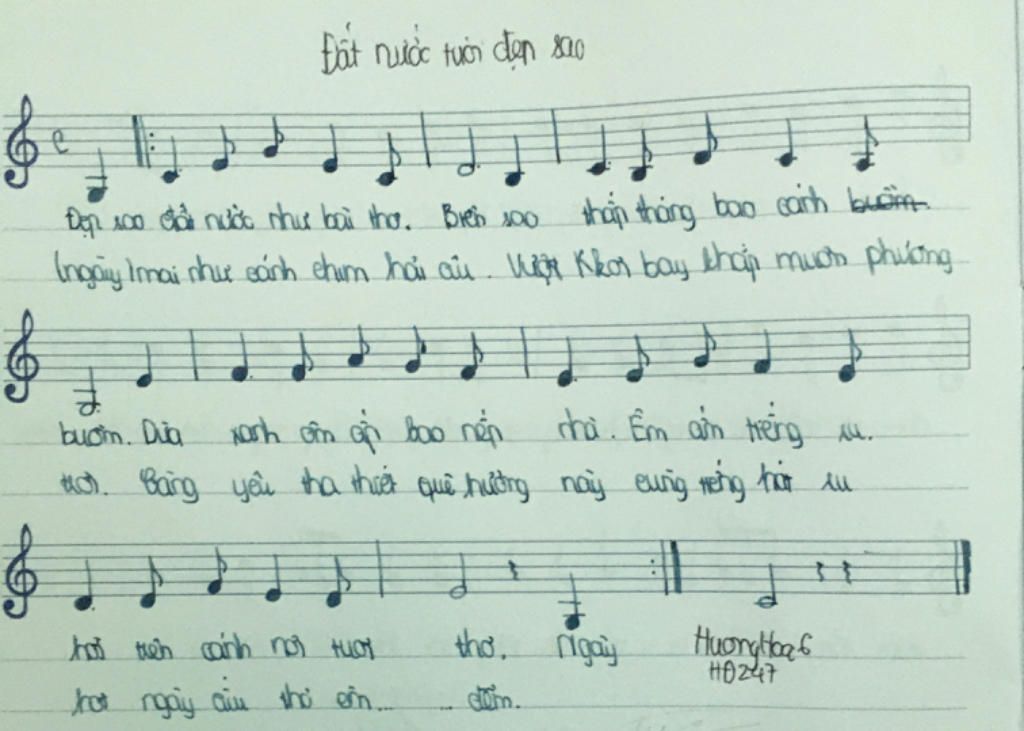 Đất nước tươi đẹp sao
Đẹp sao đất nước như bài thơ. Biển sao thấp thoáng bao cánh buồm.
(ngày) mai như cánh chim hải âu. Vượt khơi bay khắp muôn phương
buồm. Dừa xanh ôm ấp bao nếp nhà. Êm ấm tiếng ru.
trời. Bằng yêu tha thiết quê hương này cùng tiếng hát ru
hời trên cánh nơi tươi thơ. Ngày
HuongHoa6
HĐ247
hời ngày ấu thơ êm... ... đềm.